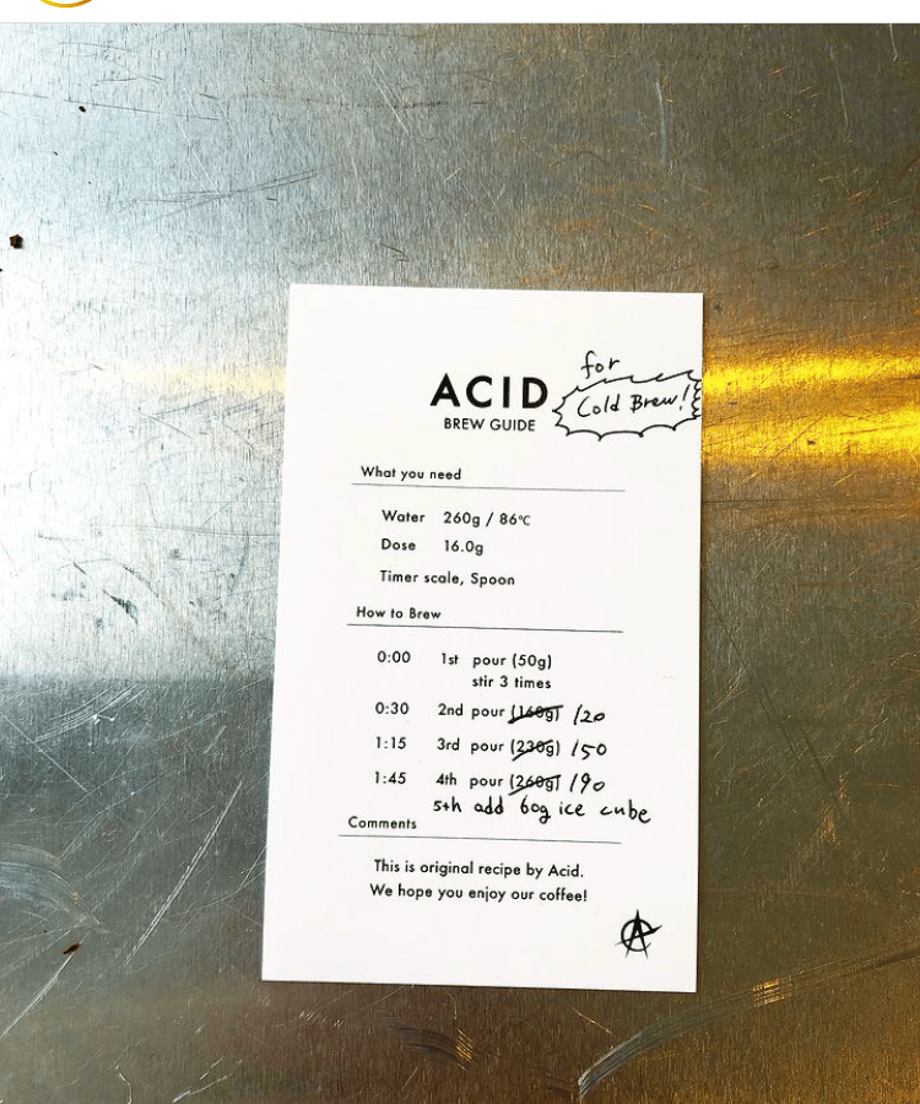 for
ACID Cold Brew!
BREW GUIDE
What you need
Water 260g / 86℃
Dose 16.0g
Timer scale, Spoon
How to Brew
0:00 1st pour (50g)
stir 3 times
0:30 2nd pour (160g) 120
1:15 3rd pour (230g) 150
1:45 4th pour (260g) 190
5th add 60g ice cube
Comments
This is original recipe by Acid.
We hope you enjoy our coffee!